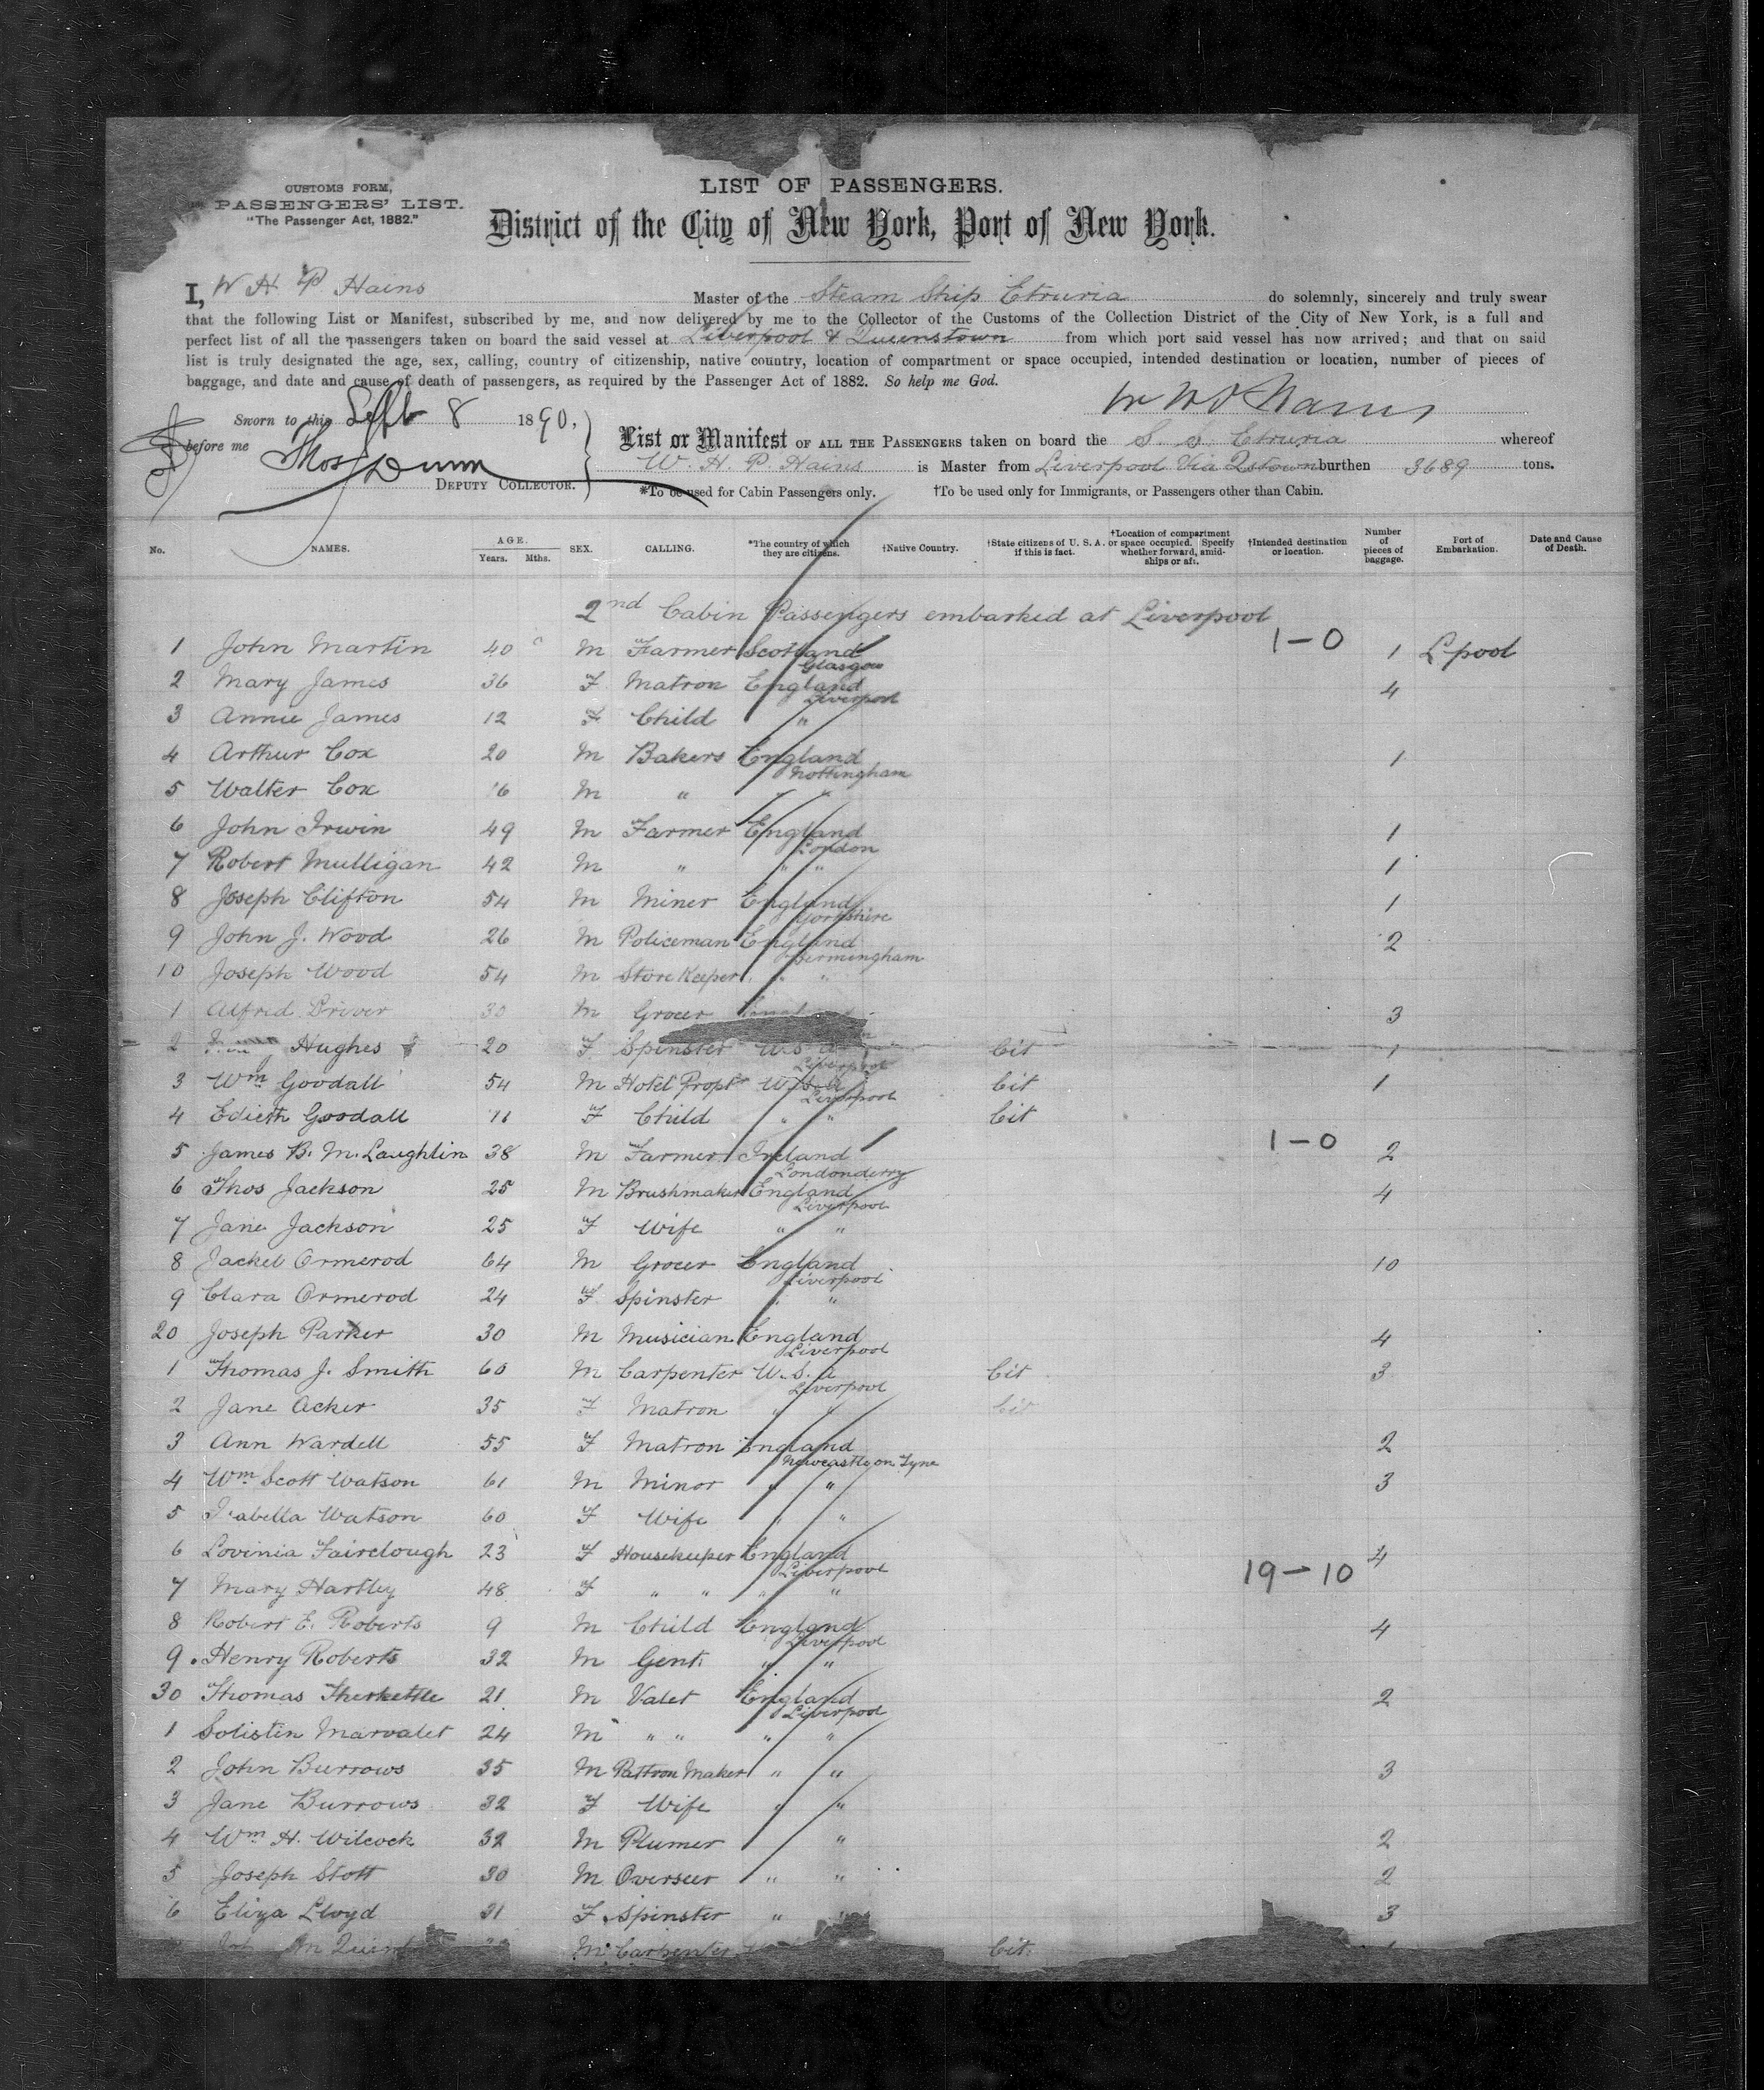 CUSTOMS FORM,
PASSENGERS' LIST.
"The Passenger Act, 1882."
LIST OF PASSENGERS.
District of the City of New York, Port of New York.
I, W H P Hains Master of the Steam Ship Etruria do solemnly, sincerely and truly swear
that the following List or Manifest, subscribed by me, and now delivered by me to the Collector of the Customs of the Collection District of the City of New York, is a full and
perfect list of all the passengers taken on board the said vessel at Liverpool & Queenstown from which port said vessel has now arrived; and that on said
list is truly designated the age, sex, calling, country of citizenship, native country, location of compartment or space occupied, intended destination or location, number of pieces of
baggage, and date and cause of death of passengers, as required by the Passenger Act of 1882. So help me God.
W H P Hains
Sworn to this Sept 8 1890,
before me Thos Dunn
DEPUTY COLLECTOR.
List or Manifest OF ALL THE PASSENGERS taken on board the S. S. Etruria whereof
W. H. P. Hains is Master from Liverpool Via Qstown burthen 3689 tons.
*To be used for Cabin Passengers only. †To be used only for Immigrants, or Passengers other than Cabin.
No. NAMES. AGE. Years. Mths. SEX. CALLING. *The country of which they are citizens. †Native Country. †State citizens of U. S. A. if this is fact. †Location of compartment or space occupied. Specify whether forward, amidships or aft. †Intended destination or location. Number of pieces of baggage. Port of Embarkation. Date and Cause of Death.
2nd Cabin Passengers embarked at Liverpool
1 John Martin 40 M Farmer Scotland Glasgow 1-0 1 Lpool
2 Mary James 36 F Matron England Liverpool 4
3 Annie James 12 F Child "
4 Arthur Cox 20 M Bakers England Nottingham 1
5 Walter Cox 16 M " " "
6 John Irwin 49 M Farmer England London 1
7 Robert Mulligan 42 M " " " 1
8 Joseph Clifton 54 M Miner England Yorkshire 1
9 John J. Wood 26 M Policeman England Bermingham 2
10 Joseph Wood 54 M Store Keeper " "
1 Alfred Driver 30 M Grocer England 3
2 Hughes 20 F Spinster U.S.A Liverpool Cit 1
3 Wm Goodall 54 M Hotel Propr U.S.A Liverpool Cit 1
4 Edieth Goodall 11 F Child " " Cit
5 James B. McLaughlin 38 M Farmer Ireland Londonderry 1-0 2
6 Thos Jackson 25 M Brushmaker England Liverpool 4
7 Jane Jackson 25 F Wife " "
8 Jacket Ormerod 64 M Grocer England Liverpool 10
9 Clara Ormerod 24 F Spinster " "
20 Joseph Parker 30 M Musician England Liverpool 4
1 Thomas J. Smith 60 M Carpenter U.S.A Liverpool Cit 3
2 Jane Acker 35 F Matron " " Cit
3 Ann Wardell 55 F Matron England Newcastle on Tyne 2
4 Wm Scott Watson 61 M Minor " " 3
5 Isabella Watson 60 F Wife " "
6 Lovinia Fairclough 23 F Housekeeper England Liverpool 19-10 4
7 Mary Hartley 48 F " " " "
8 Robert E. Roberts 9 M Child England Liverpool 4
9 Henry Roberts 32 M Gent. " "
30 Thomas Therkettle 21 M Valet England Liverpool 2
1 Solistin Marvalet 24 M " " " "
2 John Burrows 35 M Pattron Maker " " 3
3 Jane Burrows 32 F Wife " "
4 Wm H. Wilcock 32 M Plumer " 2
5 Joseph Stott 30 M Overseer " " 2
6 Eliza Lloyd 31 F Spinster " " 3
M Carpenter Cit.